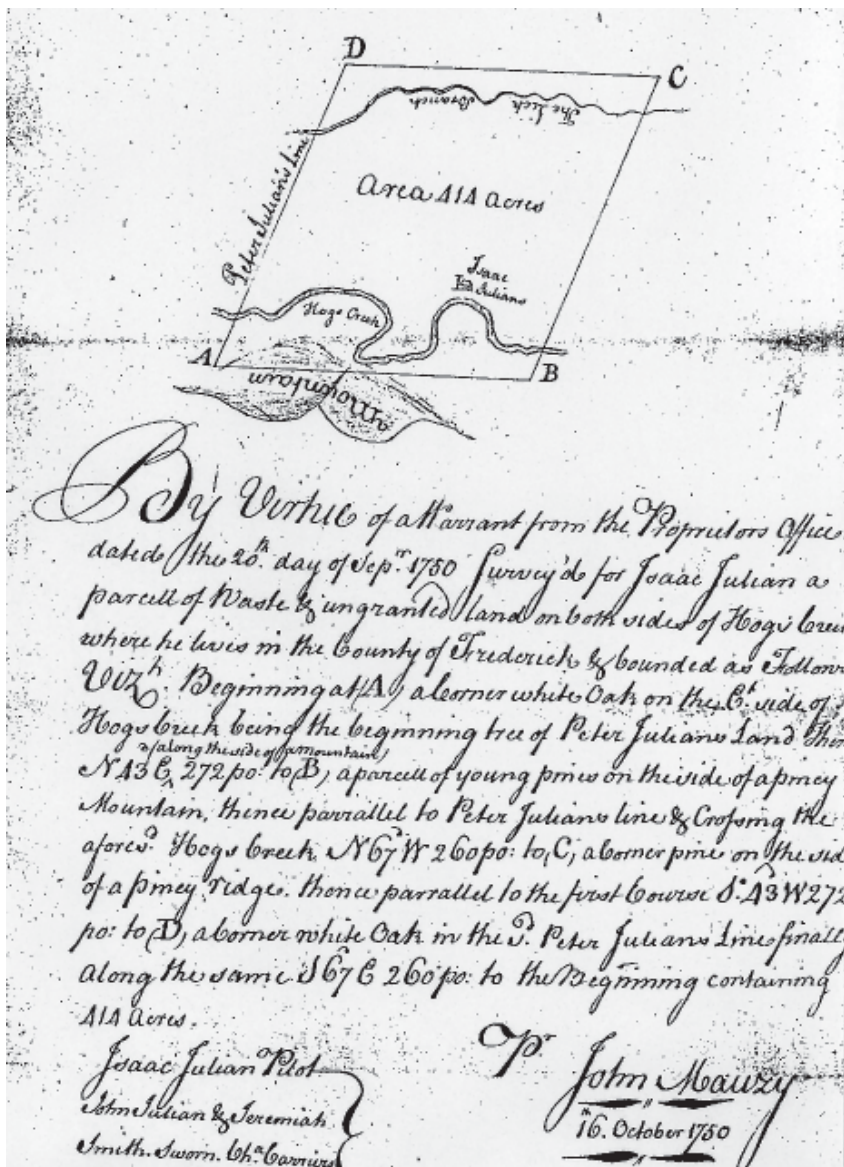 D
C
The Lick Branch
Peter Julian's Line
Area 414 acres
Isaac
Julians
Hogs Creek
A
B
a Mountain
By Virtue of a Warrant from the Proprietors Office
dated the 20th. day of Sepr. 1750 Survey'd for Isaac Julian a
parcell of Waste & ungranted land on both sides of Hogs Creek
where he lives in the County of Frederick & bounded as Follow
Vizt. Beginning at (A) a Corner white Oak on the Et. side of
Hogs Creek being the beginning tree of Peter Julians Land Then
along the side of a Mountain
N 43 E 272 po: to (B) a parcell of young pines on the side of a piney
Mountain, thence parrallel to Peter Julians line & Crossing the
aforesd. Hogs Creek N 67 W 260 po: to (C) a Corner pine on the sid
of a piney ridge. thence parrallel to the first Course So. 43 W 272
po: to (D) a Corner white Oak in the sd. Peter Julians Line finally
along the same S 67 E 260 po: to the Beginning containing
414 acres.
Isaac Julian Pilot
John Julian & Jeremiah
Smith. Sworn. Cha. Carriers
Pr
John Mauzy
16th. October 1750